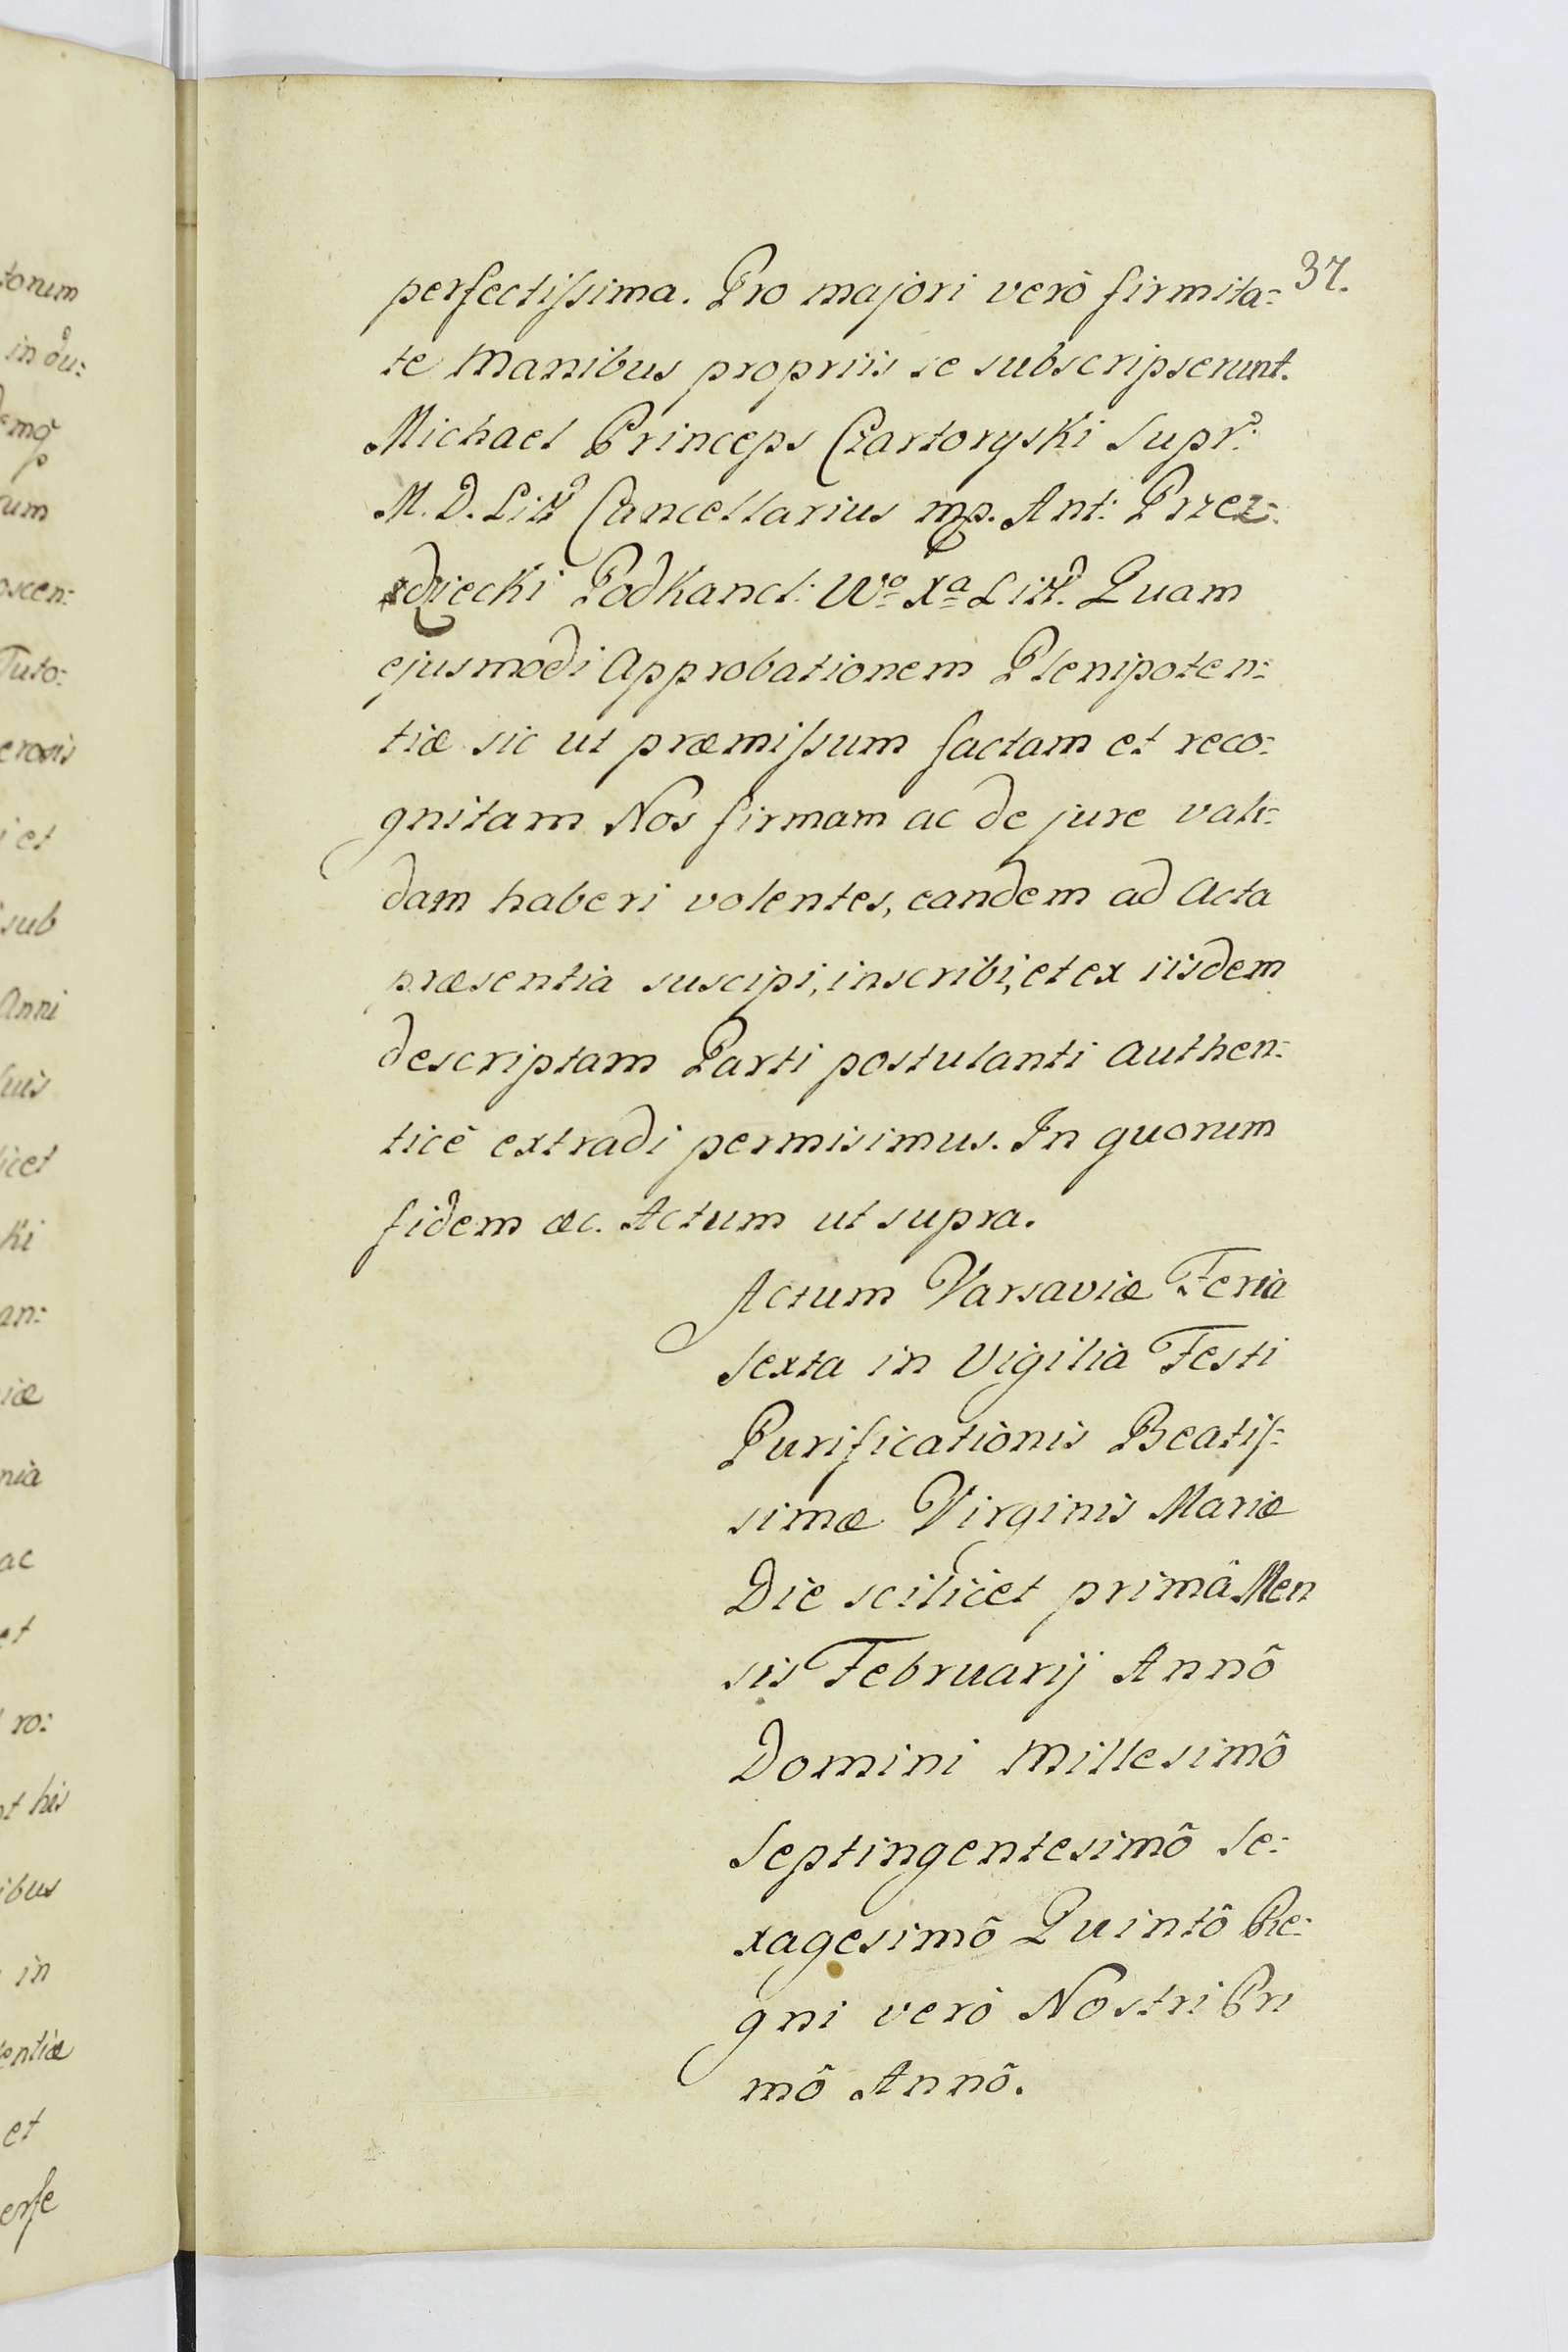 37.
perfectissima. Pro majori verò firmita=
te Manibus propriis se subscripserunt.
Michael Princeps Czartoryski Supr:
M. D. Litt Cancellarius mp. Ant: Przez=
dziecki Podkancl: Wo Xa Litt. Quam
ejusmodi Approbationem Plenipoten=
tiæ sic ut præmissum factam et reco=
gnitam Nos firmam ac de jure vali=
dam haberi volentes, eandem ad Acta
præsentia suscipi, inscribi, et ex iisdem
descriptam Parti postulanti authen=
ticè extradi permisimus. In quorum
fidem &c. Actum ut supra.
Actum Varsaviæ Feria
Sexta in Vigilia Festi
Purificationis Beatis=
simæ Virginis Mariæ
Die scilicet primâ Men
sis Februarij Annô
Domini Millesimô
Septingentesimô Se=
xagesimô Quintô Re=
gni verò Nostri Pri
mô Annô.
torum
in du:
um
oscen:
Tuto:
erosis
et
sub
Anni
suis
licet
ki
an:
iæ
nia
ac
et
ro:
t his
ibus
in
entiæ
et
erfe